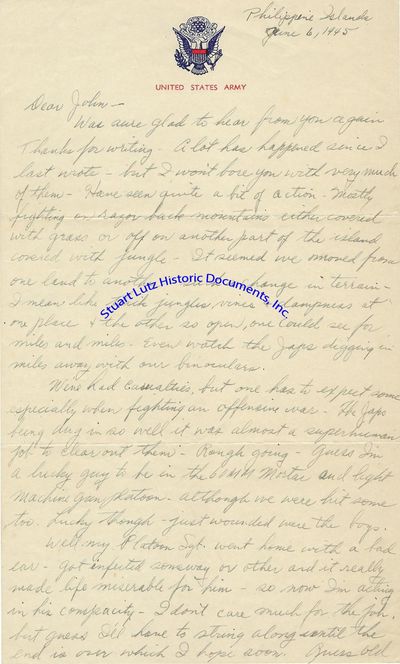 Philippine Islands
June 6, 1945
UNITED STATES ARMY
Dear John—
Was sure glad to hear from you again
Thanks for writing - A lot has happened since I
last wrote - but I won't bore you with very much
of them - Have seen quite a bit of action - Mostly
fighting in razor back mountains either covered
with grass or off on another part of the island
covered with jungle - It seemed we moved from
one land to another change in terrain -
I mean like jungles, vines dampness at
one place & the other so open, one could see for
miles and miles - Even watch the Japs digging in
miles away with our binoculars.
Stuart Lutz Historic Documents, Inc.
We've had casualties, but one has to expect some
especially when fighting an offensive war - The Japs
being dug in so well it was almost a superhuman
job to clear out them - Rough going - Guess I'm
a lucky guy to be in the 60MM Mortar and light
machine gun platoon - although we were hit some
too. Lucky though - just wounded were the boys.
Well my Platoon Sgt. went home with a bad
ear - got infected someway or other and it really
made life miserable for him - so now I'm acting
in his compacity - I don't care much for the job,
but guess I'll have to string along until the
end is over which I hope soon. Guess old